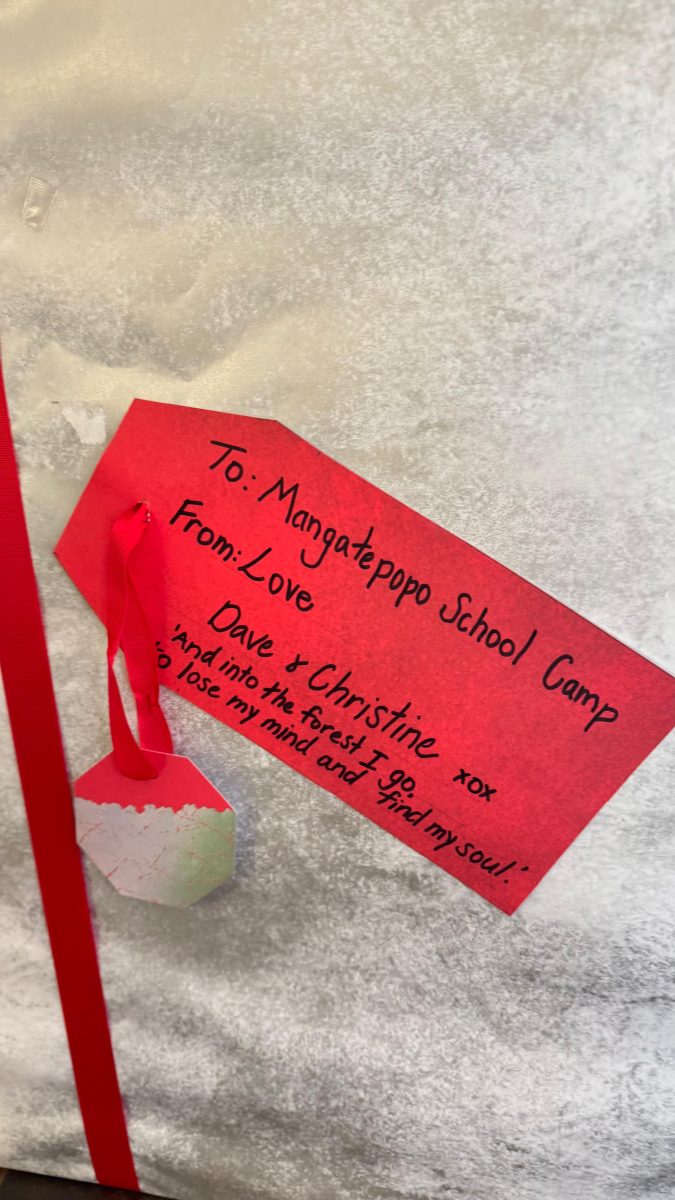 To: Mangatepopo School Camp
From: Love
Dave & Christine xox
'And into the forest I go.
to lose my mind and find my soul.'